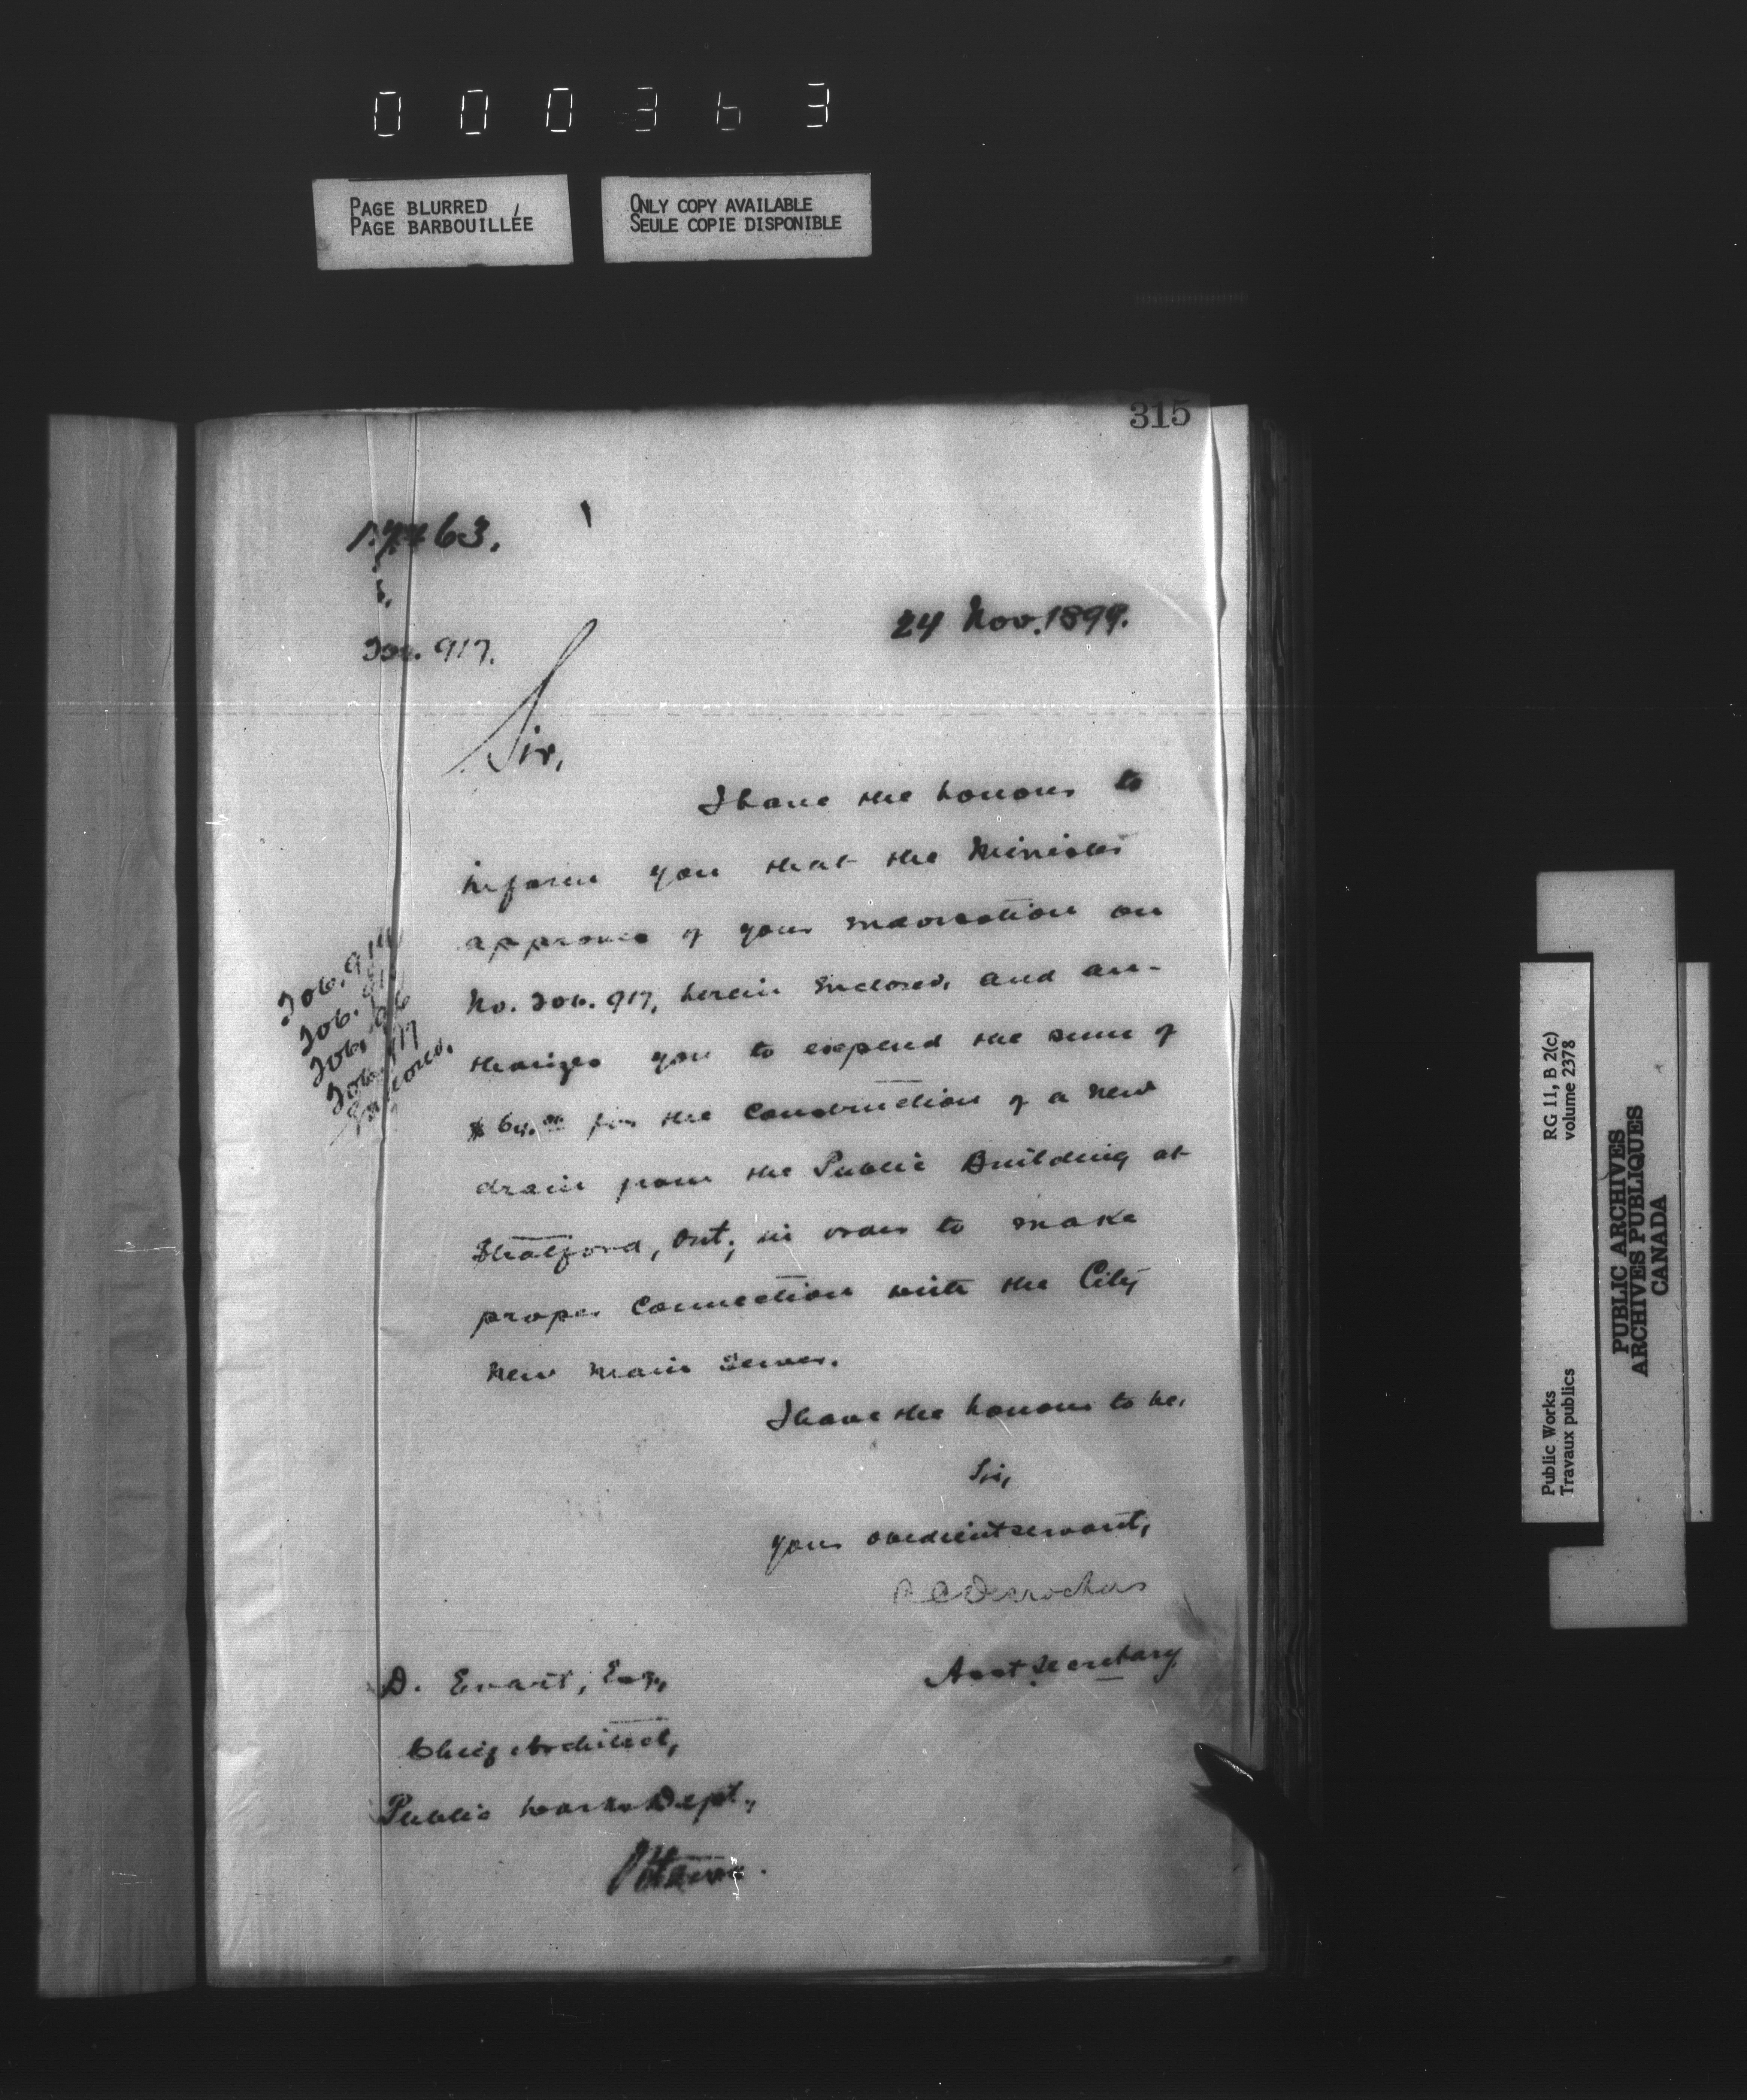 000363
PAGE BLURRED
PAGE BARBOUILLÉE
ONLY COPY AVAILABLE
SEULE COPIE DISPONIBLE
315
24 Nov. 1899.
206. 917.
Sir,
I have the honour to
inform you that the Minister
approves of your indorsation on
No. 206. 917, herein enclosed, and au-
thorizes you to expend the sum of
for the construction of a new
drain from the Public Building at
Stratford, Ont., in order to make
proper connection with the City
new main sewer.
I have the honour to be,
Sir,
your obedient servant,
Desrochers
Asst Secretary.
D. Ewart, Esq.,
Chief Architect,
Public Works Dept.,
Ottawa.
206. 914
206.
206.
206. 917
Public Works
Travaux publics
RG 11, B 2(c)
volume 2378
PUBLIC ARCHIVES
ARCHIVES PUBLIQUES
CANADA